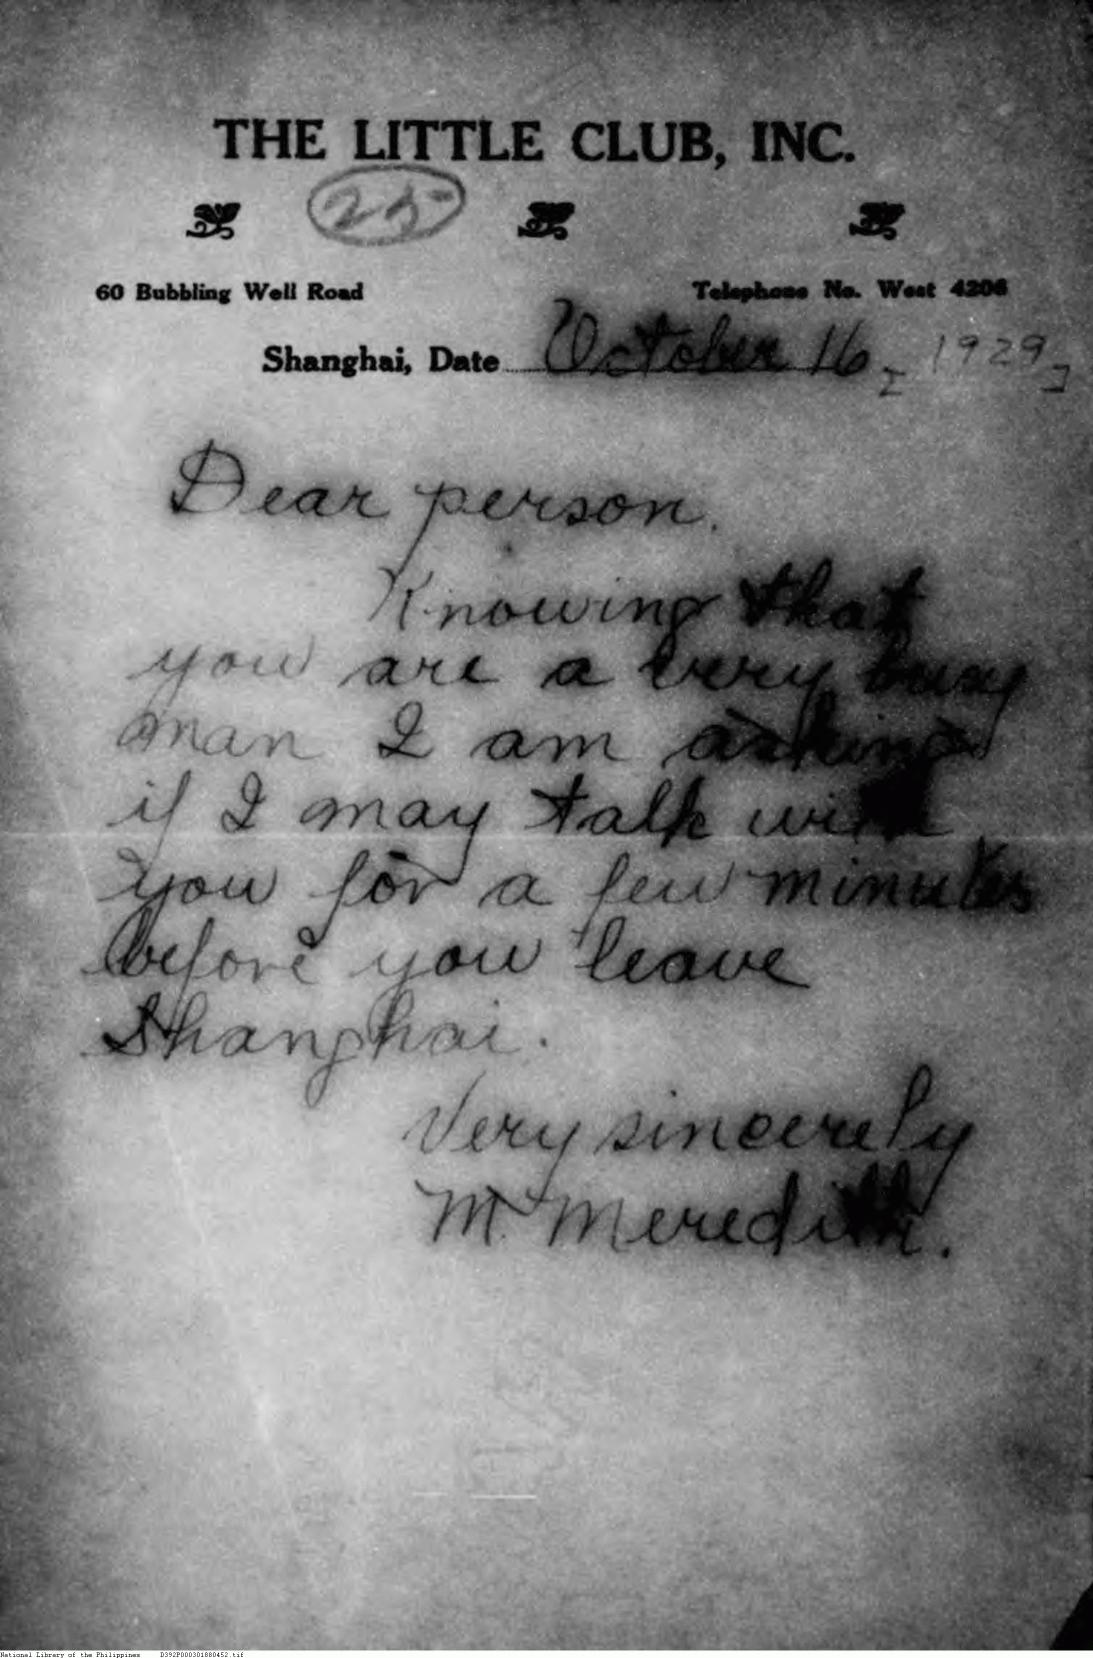 THE LITTLE CLUB, INC.
25
60 Bubbling Well Road Telephone No. West 4206
Shanghai, Date October 16, [1929]
Dear person.
Knowing that
you are a very busy
man I am asking
if I may talk with
you for a few minutes
before you leave
Shanghai.
Very sincerely
M. Meredith.
National Library of the Philippines D392P000301880452.tif